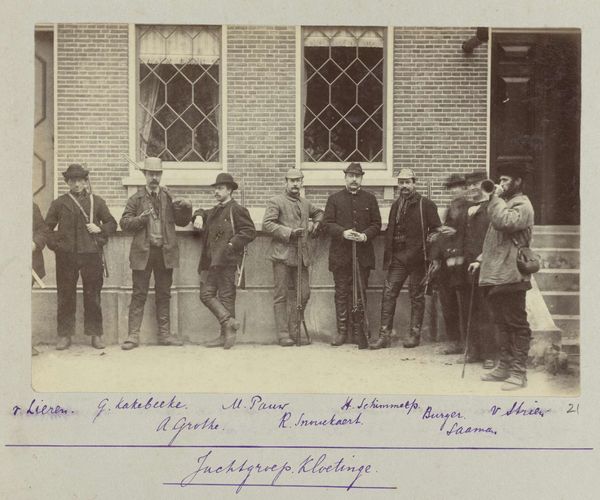 v Lieren. G. Kakebeeke. M. Pauw. H. Schimmelp. Burger. v Strien 21
A Grothe. R. Snouckaert. Saaman
Jachtgroep. Kloetinge.